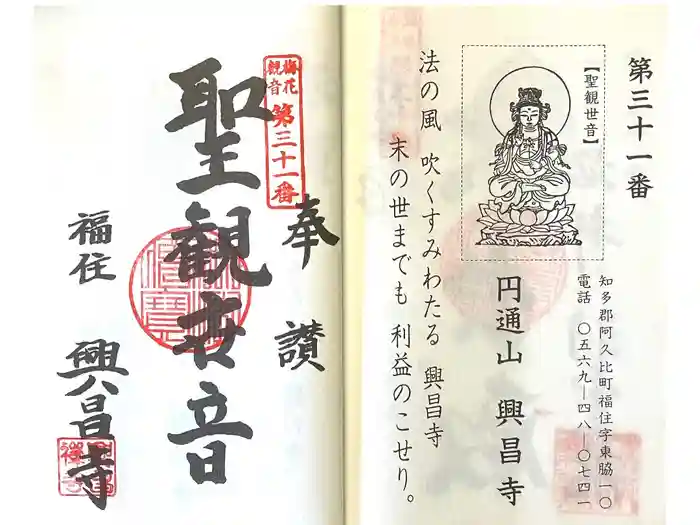 第三十一番
【聖観世音】
知多郡阿久比町福住字東脇一〇
電話 〇五六九―四八―〇七四一
円通山 興昌寺
法の風 吹くすみわたる 興昌寺
末の世までも 利益のこせり。
奉讃
梅花
観音
第三十一番
聖観世音
福住 興昌寺